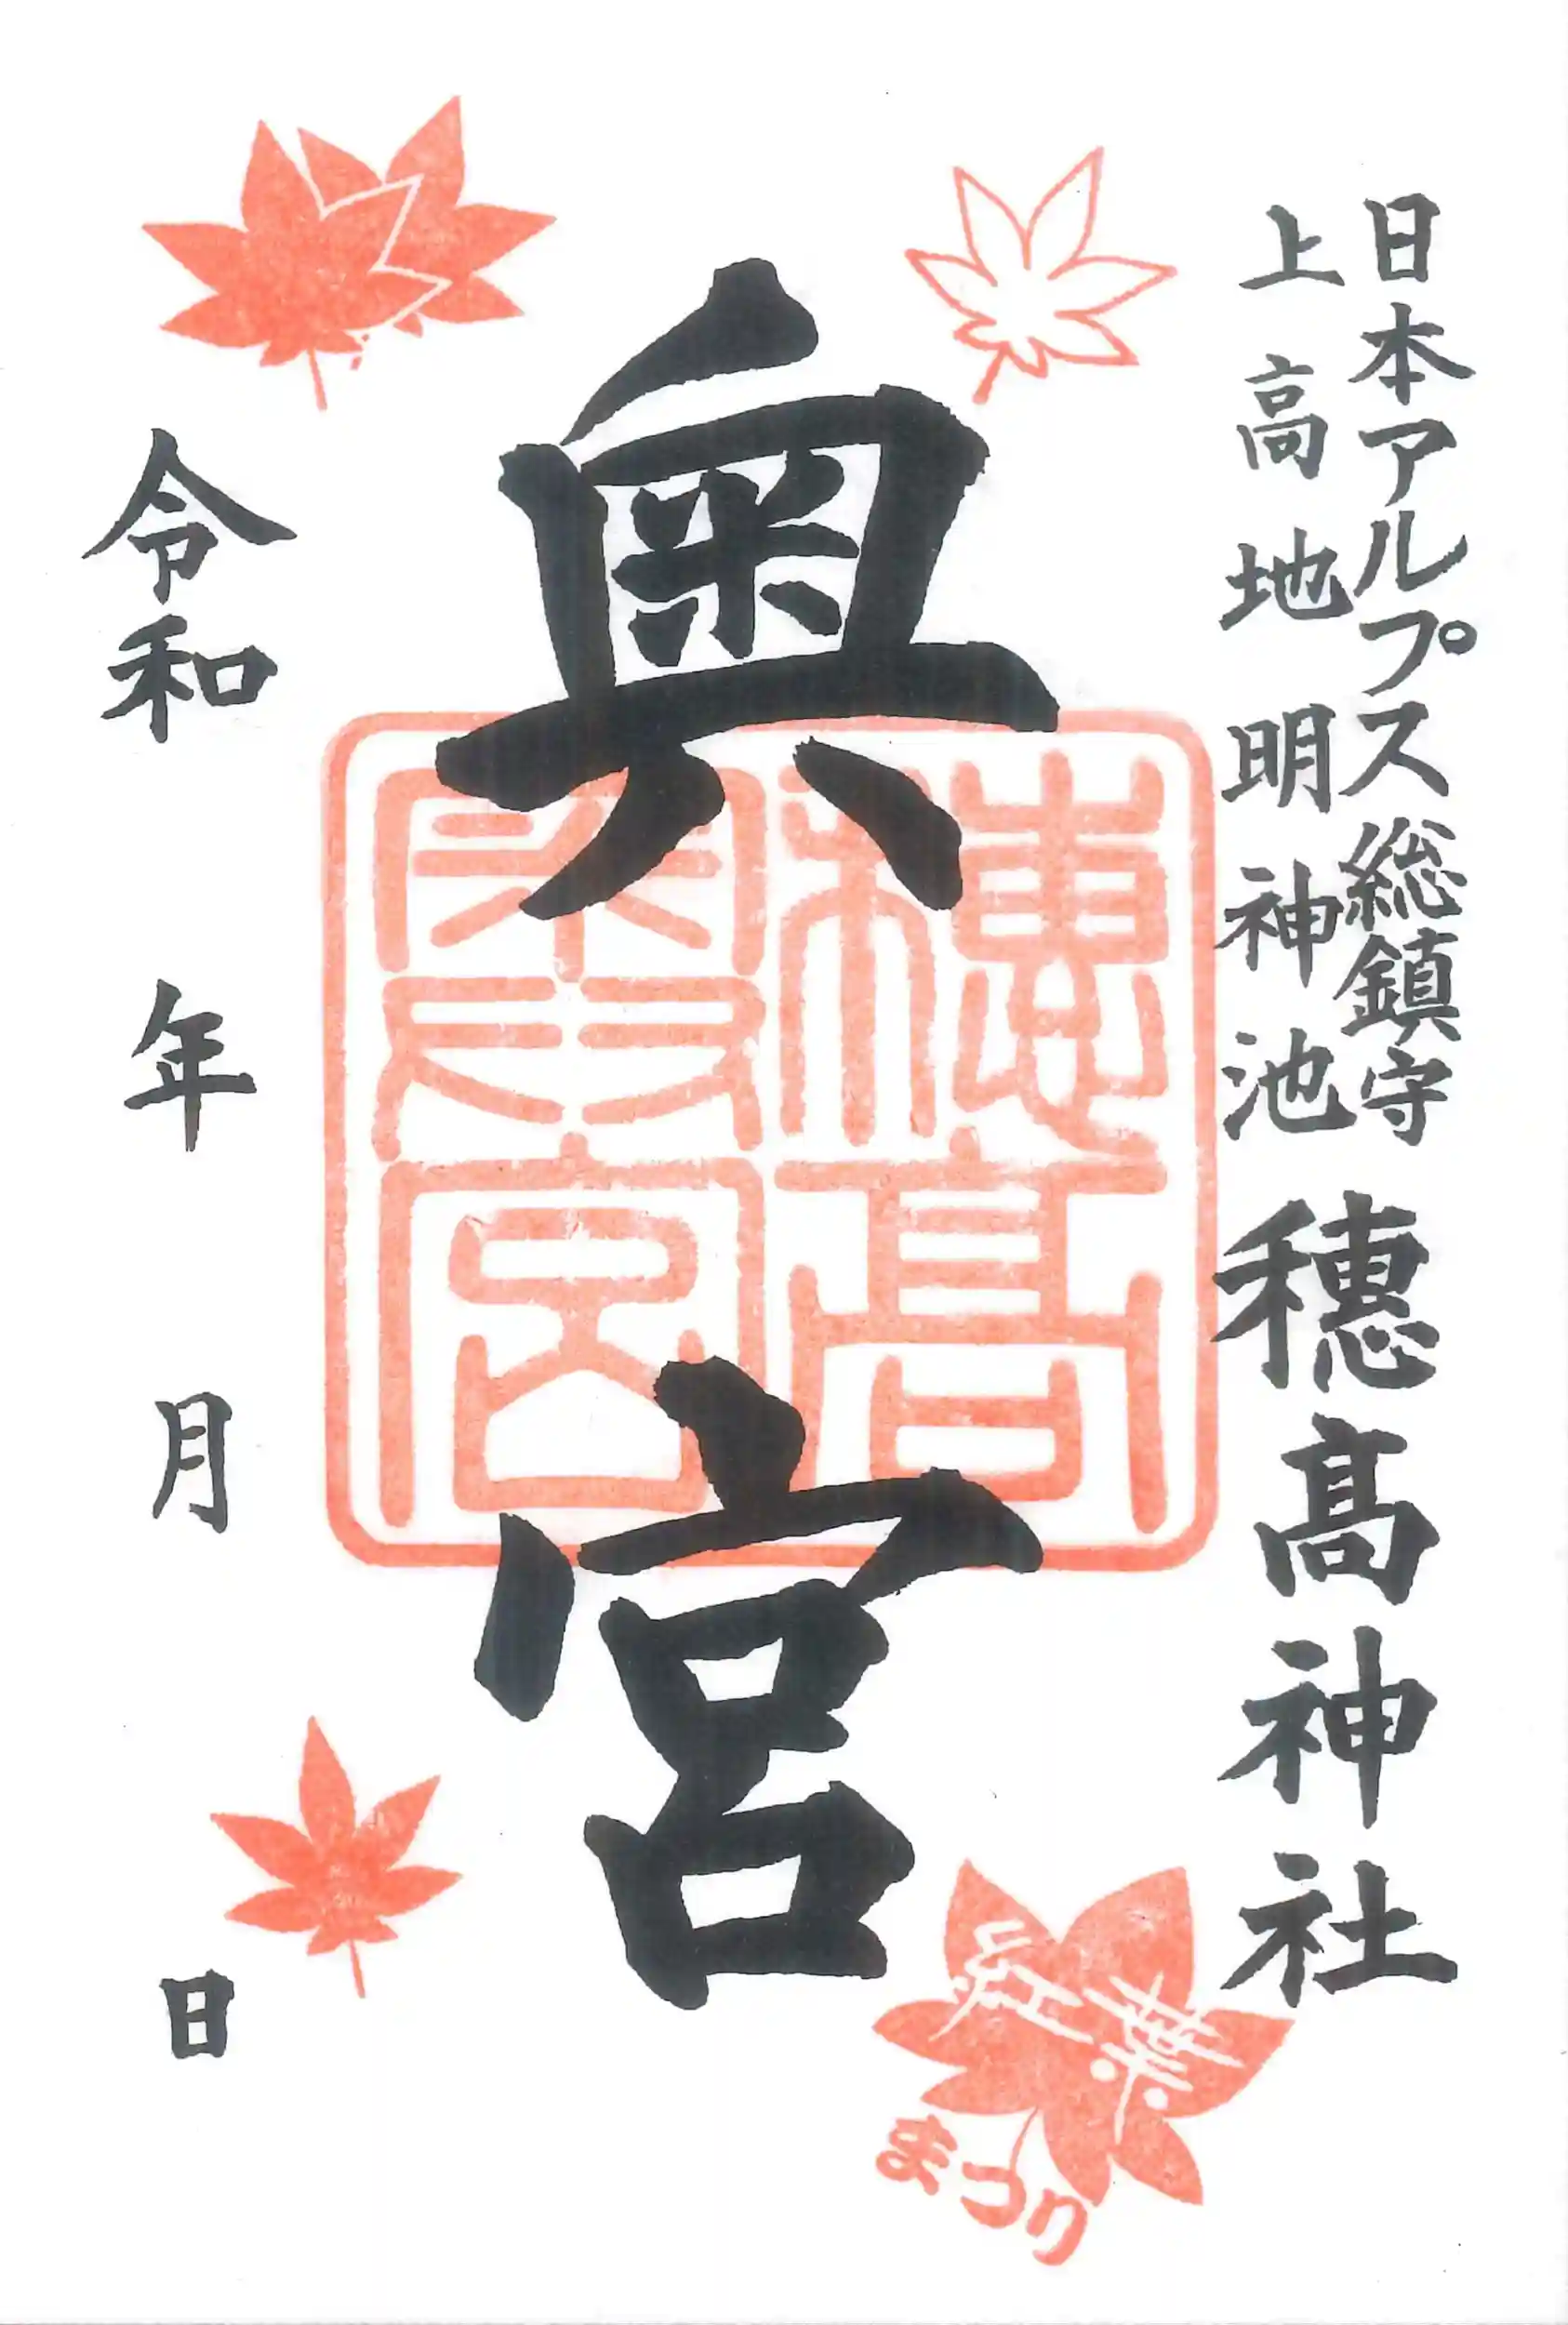 日本アルプス総鎮守
上高地明神池
穗髙神社
奥宮
穗高奥宮
令和 年 月 日
紅葉
まつり